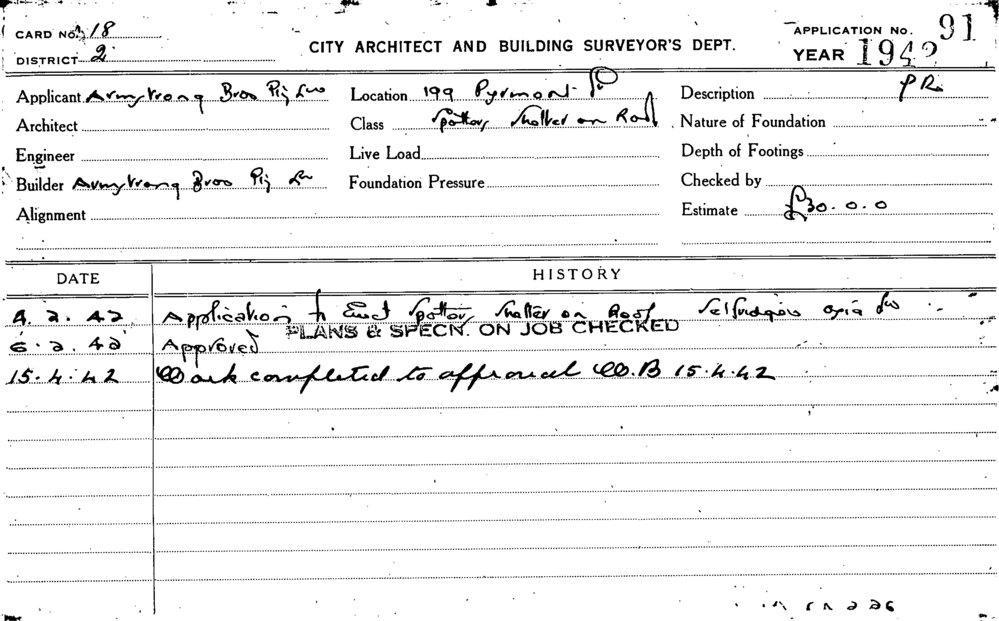 CARD No. 18
DISTRICT 2
CITY ARCHITECT AND BUILDING SURVEYOR'S DEPT.
APPLICATION No. 91
YEAR 1942
Applicant Armstrong Bros Pty Ltd
Location 199 Pyrmont St
Description P R.
Architect
Class Spotters Shelter on Roof
Nature of Foundation
Engineer
Live Load
Depth of Footings
Builder Armstrong Bros Pty Ltd
Foundation Pressure
Checked by
Alignment
Estimate £30.0.0
DATE HISTORY
4. 2. 42 Application to Erect Spotters Shelter on Roof
PLANS & SPECN. ON JOB CHECKED
6. 2. 42 Approved
15.4.42 Work completed to approval W.B 15.4.42